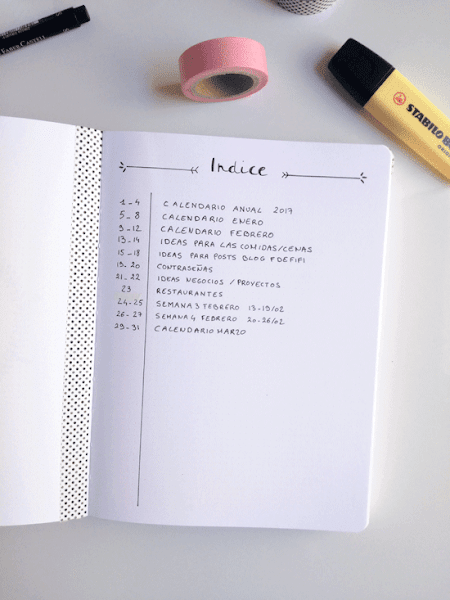 FABER CASTELL
STABILO BO
Indice
1-4 CALENDARIO ANUAL 2017
5-8 CALENDARIO ENERO
9-12 CALENDARIO FEBRERO
13-14 IDEAS PARA LAS COMIDAS/CENAS
15-18 IDEAS PARA POSTS BLOG FDEFIFI
19-20 CONTRASEÑAS
21-22 IDEAS NEGOCIOS / PROYECTOS
23 RESTAURANTES
24-25 SEMANA 3 FEBRERO 13-19/02
26-27 SEMANA 4 FEBRERO 20-26/02
29-31 CALENDARIO MARZO